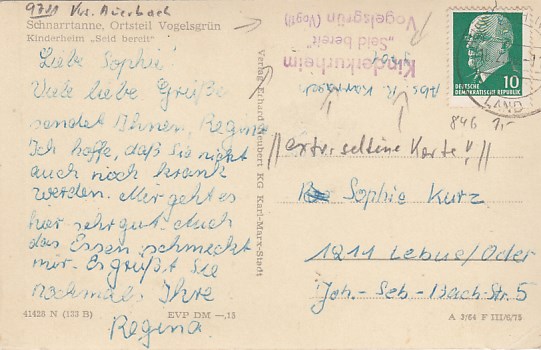 9701 Krs. Auerbach
Schnarrtanne, Ortsteil Vogelsgrün
Kinderheim „Seid bereit"
Liebe Sophie!
Viele liebe Grüße
sendet Ihnen, Regina
Ich hoffe, daß Sie nicht
auch noch krank
werden. Mir geht es
hier sehr gut. Auch
das Essen schmeckt
mir. Es grüßt Sie
nochmals Ihre
Regina
41428 N (133 B)
EVP DM —,15
Verlag Erhard Neubert KG Karl-Marx-Stadt
Kinderkurheim
„Seid bereit"
Vogelsgrün (Vogtl)
Abs. R.
10
DEUTSCHE
DEMOKRATISCHE REPUBLIK
LAND
846 1,-
//extr. seltene Karte!//
Sophie Kurz
1211 Lebus/Oder
Joh.-Seb-Bach-Str. 5
A 3/64 F III/6/75